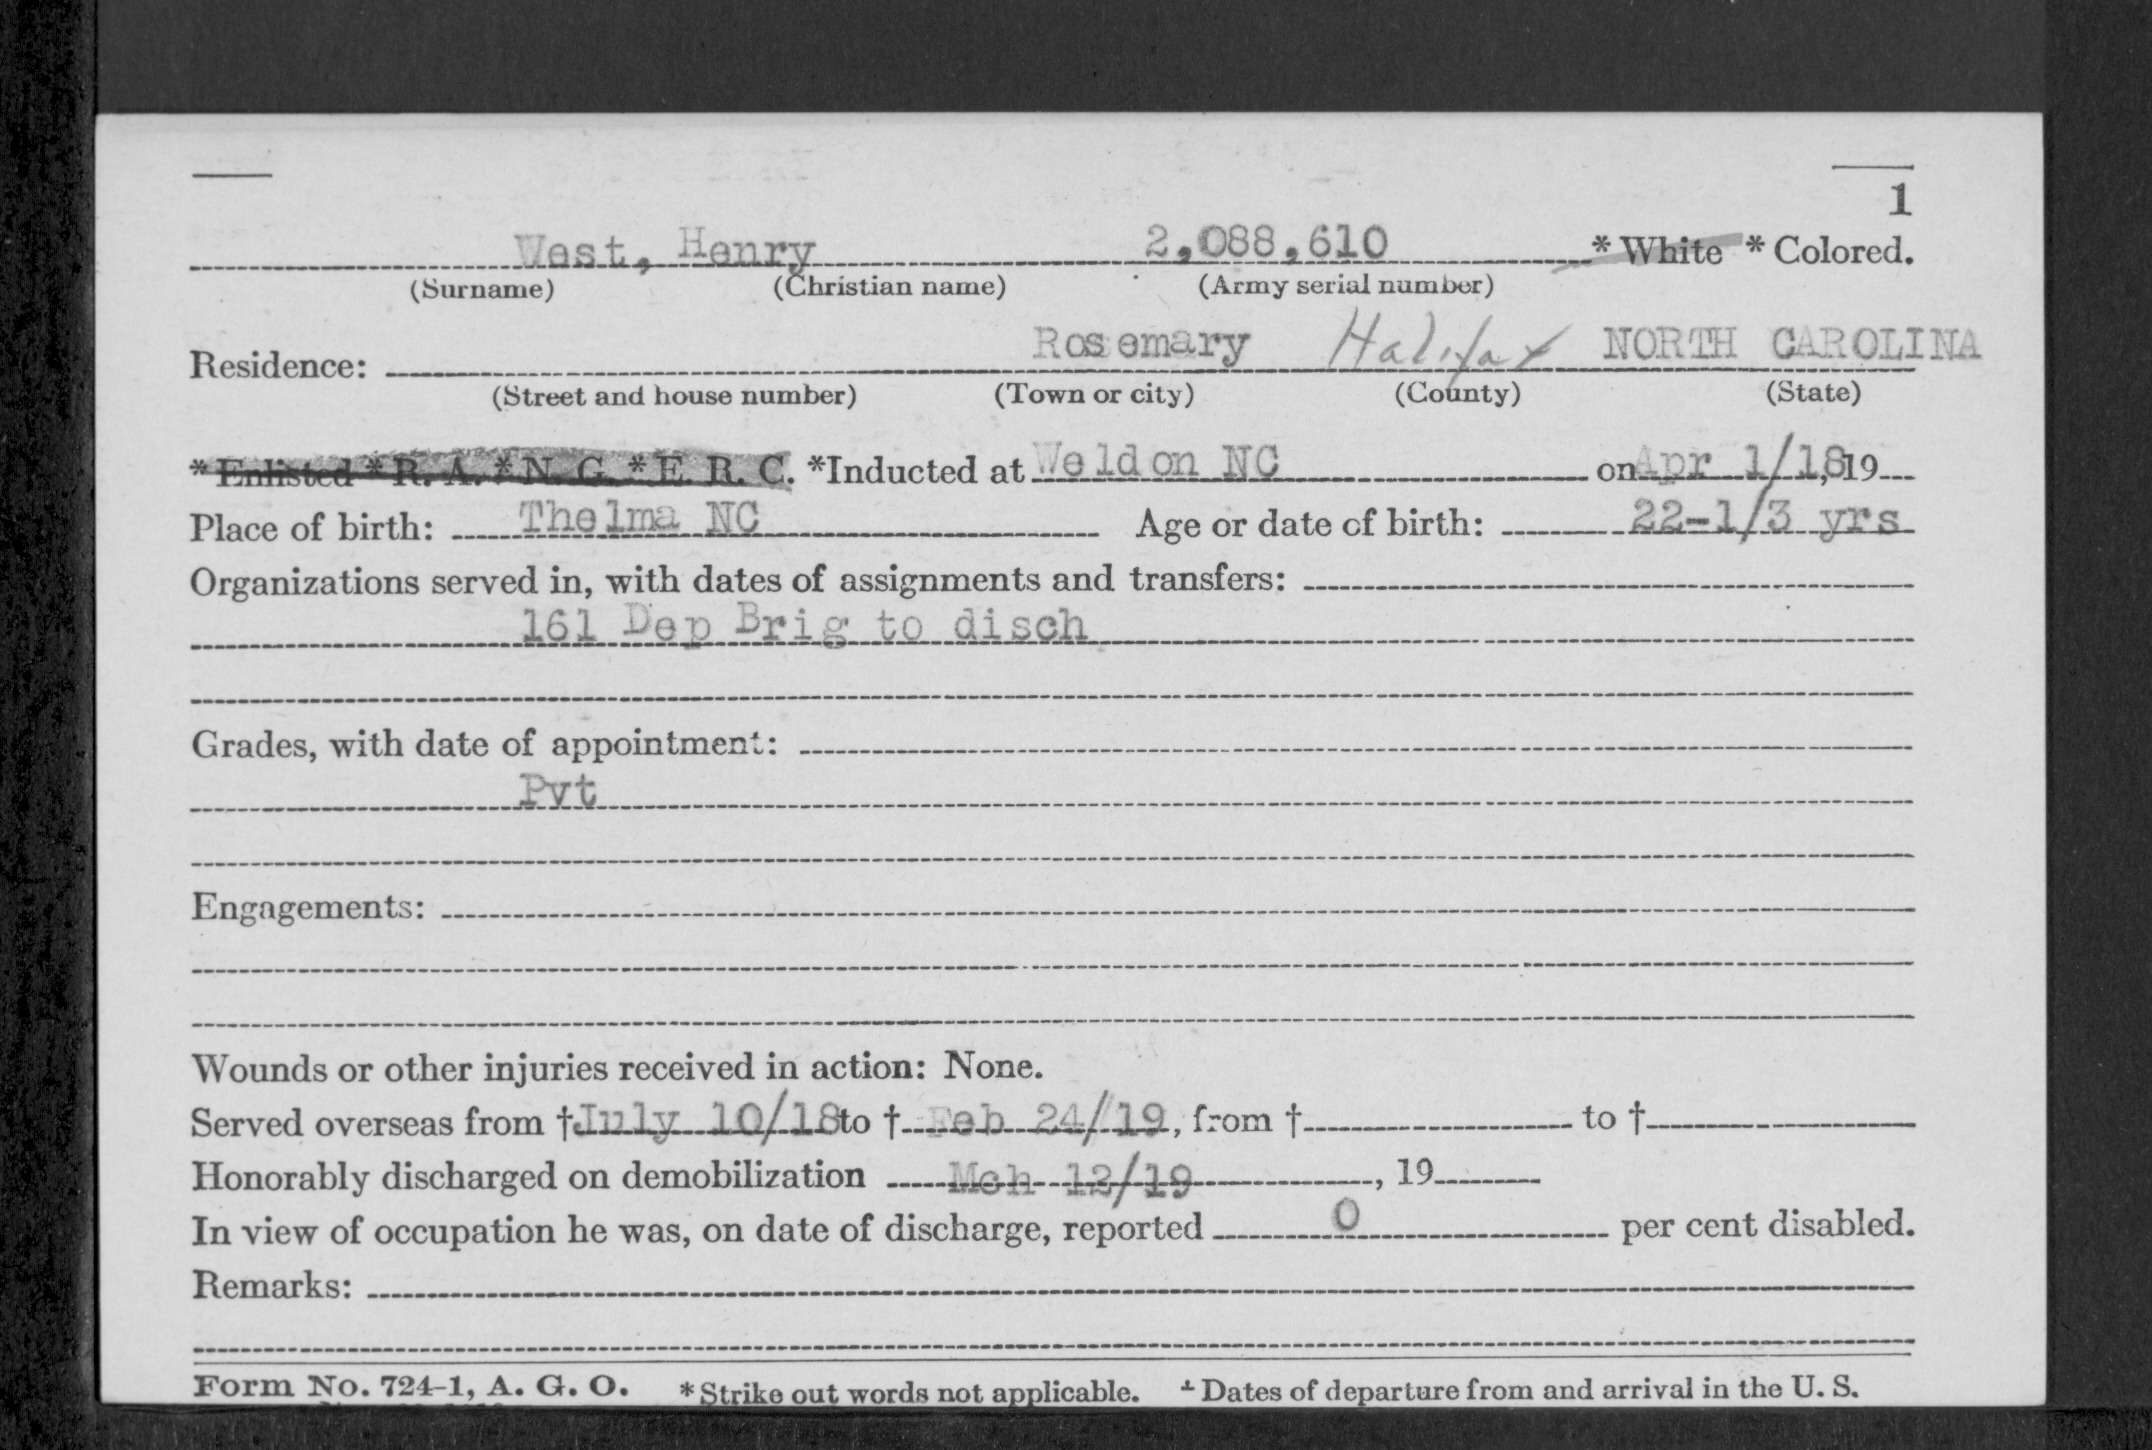 1
West, Henry 2,088,610 * White * Colored.
(Surname) (Christian name) (Army serial number)
Residence: Rosemary Halifax NORTH CAROLINA
(Street and house number) (Town or city) (County) (State)
* Enlisted * R. A. * N. G. * E. R. C. *Inducted at Weldon NC on Apr 1/18, 19
Place of birth: Thelma NC Age or date of birth: 22-1/3 yrs
Organizations served in, with dates of assignments and transfers:
161 Dep Brig to disch
Grades, with date of appointment:
Pvt
Engagements:
Wounds or other injuries received in action: None.
Served overseas from †July 10/18 to † Feb 24/19, from † to †
Honorably discharged on demobilization Mch 12/19, 19
In view of occupation he was, on date of discharge, reported 0 per cent disabled.
Remarks:
Form No. 724-1, A. G. O. *Strike out words not applicable. † Dates of departure from and arrival in the U. S.